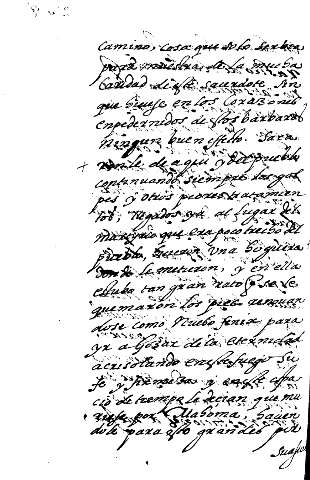 camino, cosa que solo serbia
para muestra de la mucha
caridad de este sacerdote sin
que hiciese en los corazones
enpedernidos de estos barbaros
ningun buen effecto. Saca
ronle de aqui y del pueblo
continuando siempre los gol
pes y otros peores tratamien
tos, llegados ya al lugar del
martirio que era poco trecho del
pueblo hicieron una hoguera
donde le metieron, y en ella
estubo tan gran rato q se le
quemaron los pies
dose como Nuebo fenix para
yr a Gozar de la eternidad
acrisolando en este fuego su
fe y firmeza y en este espa
cio de tiempo le decian que mu
riese por Mahoma, hacien
dole para esto grandes